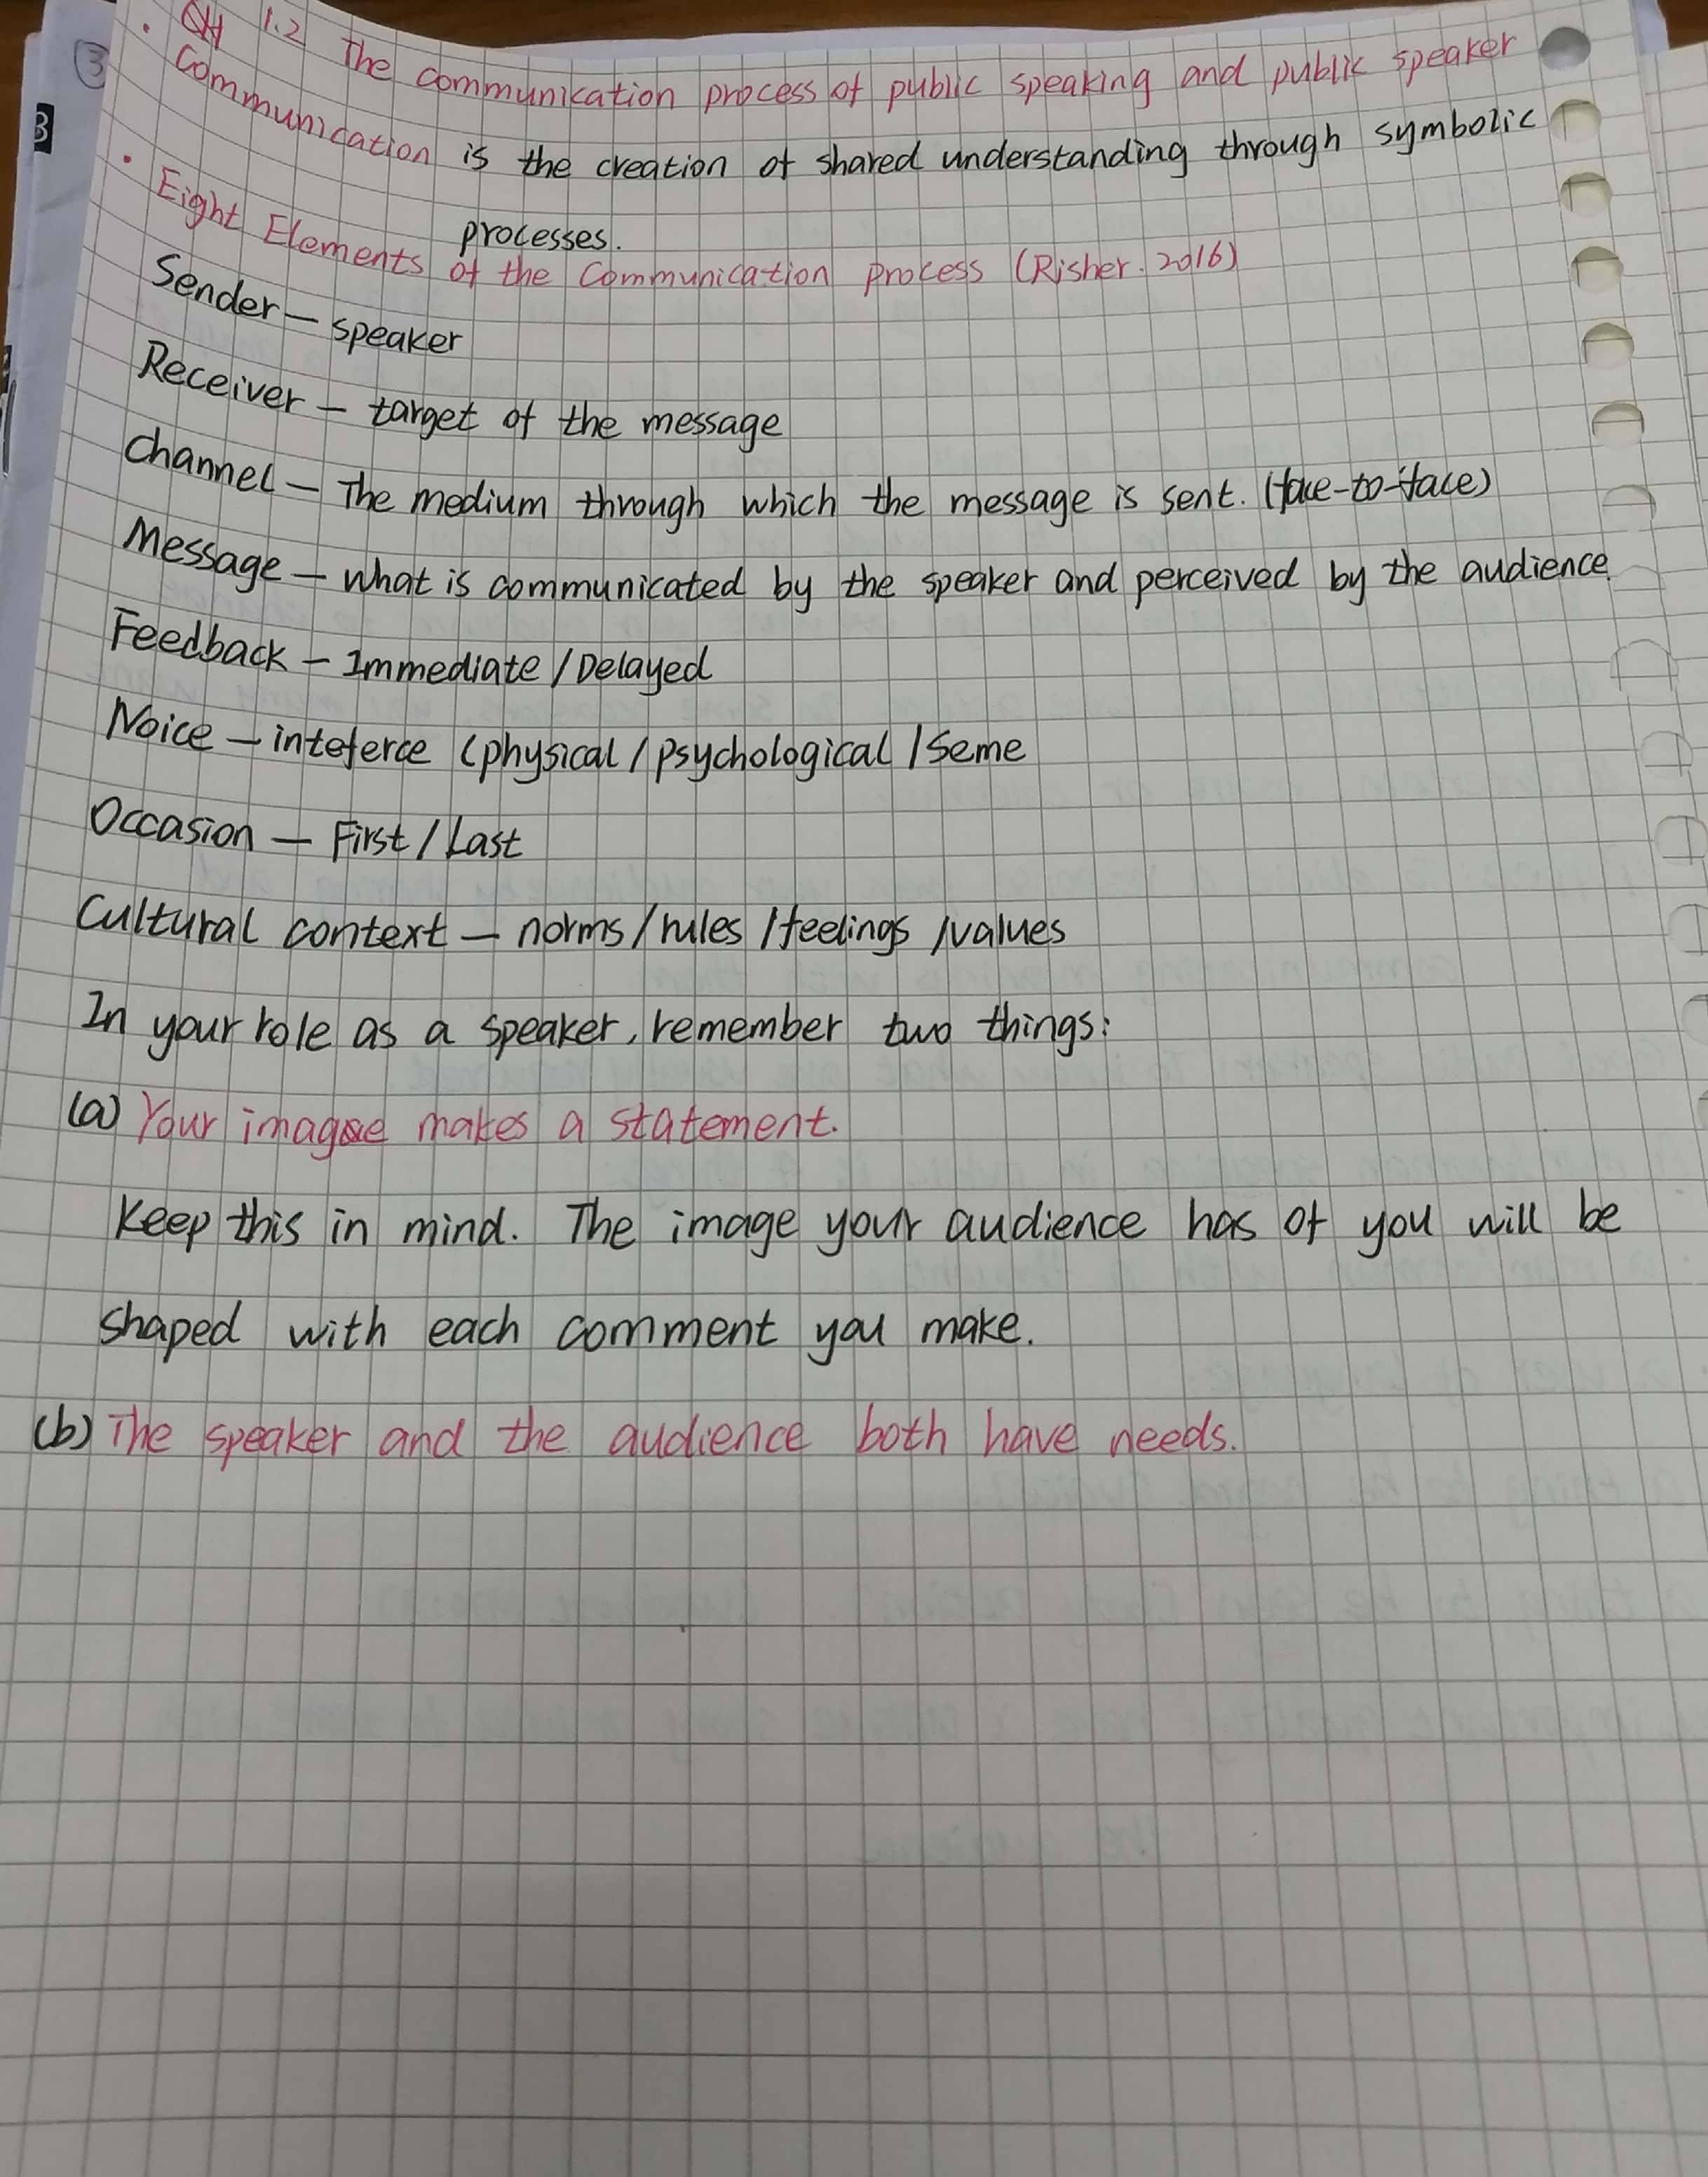 ③
B
· CH 1.2 The communication process of public speaking and public speaker
Communication is the creation of shared understanding through symbolic
processes.
· Eight Elements of the Communication process (Risher. 2016)
Sender — speaker
Receiver — target of the message
Channel — The medium through which the message is sent. (face-to-face)
Message — what is communicated by the speaker and perceived by the audience.
Feedback — Immediate / Delayed
Noice — inteferce (physical / psychological / Seme
Occasion — First / Last
Cultural context — norms / rules / feelings / values
In your role as a speaker, remember two things:
(a) Your image makes a statement.
Keep this in mind. The image your audience has of you will be
shaped with each comment you make.
(b) The speaker and the audience both have needs.